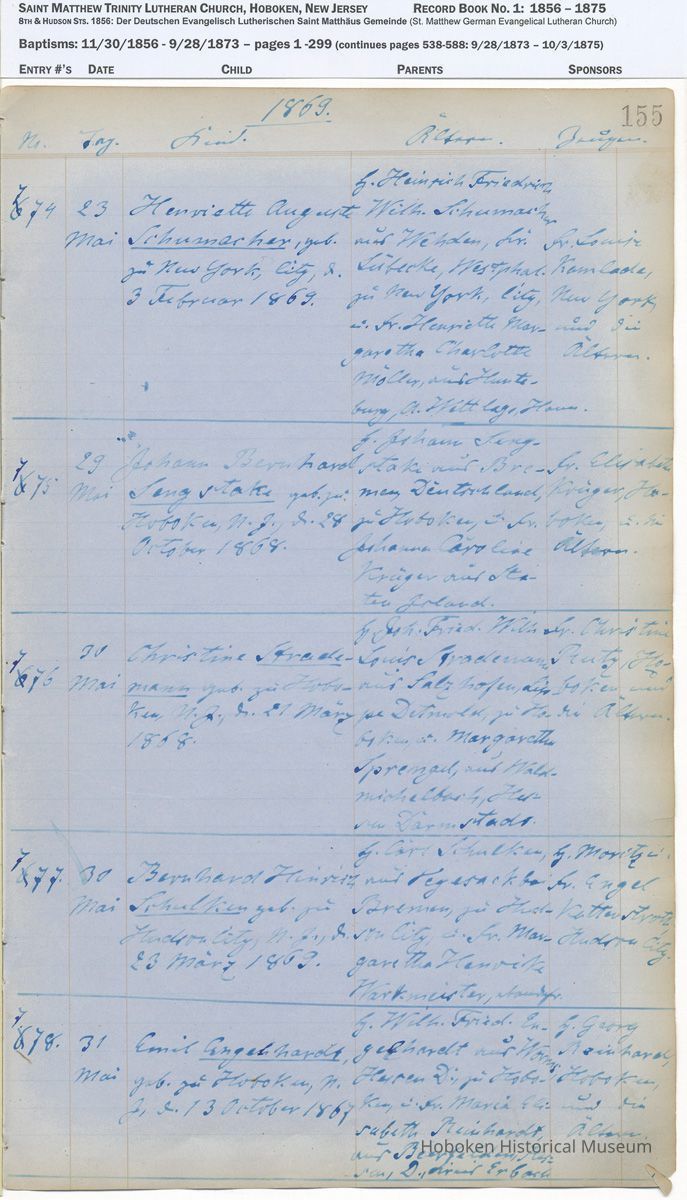 SAINT MATTHEW TRINITY LUTHERAN CHURCH, HOBOKEN, NEW JERSEY RECORD BOOK NO. 1: 1856 – 1875
8TH & HUDSON STS. 1856: Der Deutschen Evangelisch Lutherischen Saint Matthäus Gemeinde (St. Matthew German Evangelical Lutheran Church)
Baptisms: 11/30/1856 - 9/28/1873 – pages 1 -299 (continues pages 538-588: 9/28/1873 – 10/3/1875)
ENTRY #'S DATE CHILD PARENTS SPONSORS
1869. 155
No. Tag. Kind. Ältern. Zeugen.
774
23
Mai
Henriette Auguste
Schumacher, geb.
zu New York, City, d.
3 Februar 1869.
H. Heinrich Friedrich
Wilh. Schumacher
aus Wehden, Kr.
Lübecke, Westphal.
zu New York, City,
u. Fr. Henriette Mar-
garetha Charlotte
Möller, aus Hunte-
burg, A. Wittlage, Hann.
Fr. Louise
Kamlade,
New York
und die
Ältern.
775
29
Mai
Johann Bernhard
Sengstake geb. zu
Hoboken, N. J., d. 28
October 1868.
H. Johann Seng-
stake aus Bre-
men Deutschland,
zu Hoboken, u. Fr.
Johanna Caroline
Krüger aus Sta-
ten Island.
Fr. Elisabeth
Krüger, Ho-
boken, u. die
Ältern.
776
30
Mai
Christine Strade-
mann geb. zu Hobo-
ken, N. J., d. 21 März
1868.
H. Joh. Fried. Wilh.
Louis Strademan
aus Salzhofen, Lip-
pe Detmold, zu Ho-
boken, u. Margaretha
Sprengel, aus Wald-
michelbach, Hes-
sen Darmstadt.
Fr. Christine
Rutz, Ho-
boken und
die Ältern.
777.
30
Mai
Bernhard Hinrich
Schulken geb. zu
Hudson City, N. J., d.
23 März 1869.
H. Carl Schulken,
aus Vegesack bei
Bremen, zu Hud-
son City, u. Fr. Mar-
garetha Henrike
Warkmeister,
H. Moritz u.
Fr. Engel
Kattenstroth
Hudson City.
778.
31
Mai
Emil Engelhardt,
geb. zu Hoboken, N.
J., d. 13 October 1867
H. Wilh. Fried. En-
gelhardt aus Worms
Hessen D., zu Hobo-
ken, u. Fr. Maria Eli-
sabeth Reinhardt,
aus Beerfelden, Hes-
sen, D., Kreis Erbach
H. Georg
Reinhard,
Hoboken,
und die
Ältern.
Hoboken Historical Museum